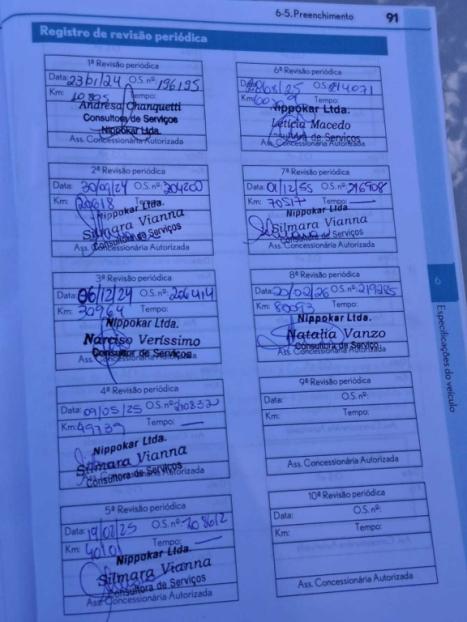 6-5. Preenchimento 91
Registro de revisão periódica
1ª Revisão periódica
Data: 23/01/24 O.S. nº: 196195
Km: Tempo:
Andresa Chanquetti
Consultora de Serviços
Nippokar Ltda.
Ass. Concessionária Autorizada
2ª Revisão periódica
Data: 30/09/24 O.S. nº: 204200
Km: 20618 Tempo:
Nippokar Ltda.
Silmara Vianna
Consultora de Serviços
Ass. Concessionária Autorizada
3ª Revisão periódica
Data: 06/12/24 O.S. nº: 206414
Km: 30964 Tempo:
Nippokar Ltda.
Narciso Veríssimo
Consultor de Serviços
Ass. Concessionária Autorizada
4ª Revisão periódica
Data: 09/05/25 O.S. nº: 210832
Km: 49739 Tempo: —
Nippokar Ltda.
Silmara Vianna
Consultora de Serviços
Ass. Concessionária Autorizada
5ª Revisão periódica
Data: 19/02/25 O.S. nº: 208612
Km: 40101 Tempo: —
Nippokar Ltda.
Silmara Vianna
Consultora de Serviços
Ass. Concessionária Autorizada
6ª Revisão periódica
Data: O.S. nº: 214071
Km: Tempo:
Nippokar Ltda.
Leticia Macedo
Consultora de Serviços
Ass. Concessionária Autorizada
7ª Revisão periódica
Data: 01/12/55 O.S. nº: 216908
Km: 70517 Tempo: —
Nippokar Ltda
Silmara Vianna
Consultora de Serviços
Ass. Concessionária Autorizada
8ª Revisão periódica
Data: 20/02/26 O.S. nº: 219285
Km: 80093 Tempo:
Nippokar Ltda.
Natalia Vanzo
Consultora de Serviço
Ass. Concessionária Autorizada
9ª Revisão periódica
Data: O.S. nº:
Km: Tempo:
Ass. Concessionária Autorizada
10ª Revisão periódica
Data: O.S. nº:
Km: Tempo:
Ass. Concessionária Autorizada
6
Especificações do veículo